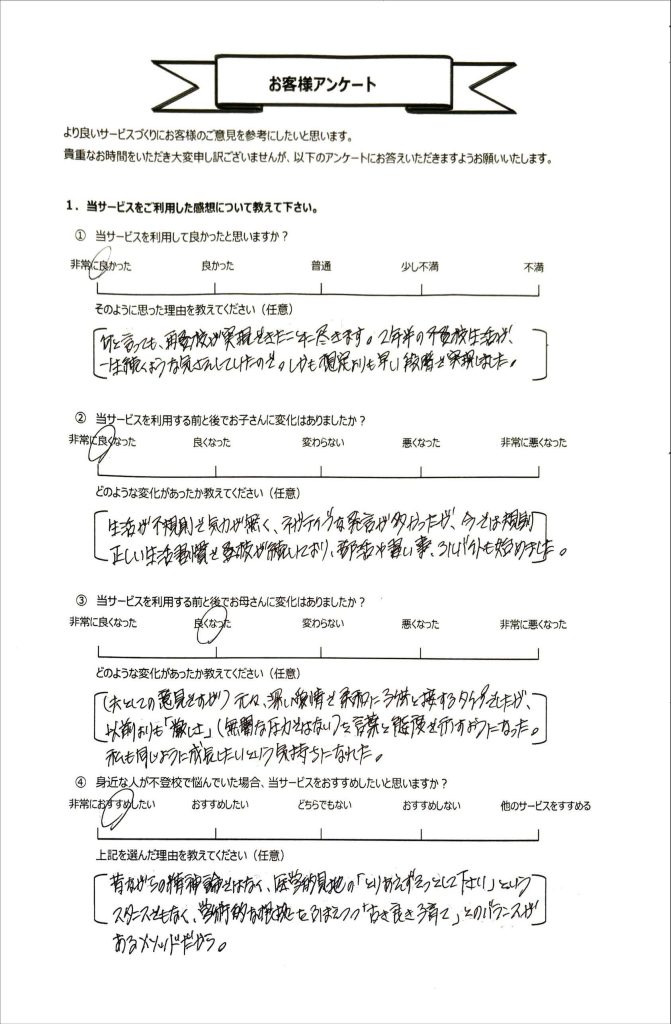 お客様アンケート
より良いサービスづくりにお客様のご意見を参考にしたいと思います。
貴重なお時間をいただき大変申し訳ございませんが、以下のアンケートにお答えいただきますようお願いいたします。
1．当サービスをご利用した感想について教えて下さい。
① 当サービスを利用して良かったと思いますか？
非常に良かった 良かった 普通 少し不満 不満
そのように思った理由を教えてください（任意）
何と言っても、再登校が実現できたことに尽きます。2年半の不登校生活が、
一生続くような気さえしていたので。しかも想定よりも早い段階で実現しました。
② 当サービスを利用する前と後でお子さんに変化はありましたか？
非常に良くなった 良くなった 変わらない 悪くなった 非常に悪くなった
どのような変化があったか教えてください（任意）
生活が不規則で気力が無く、ネガティブな発言が多かったが、今では規則
正しい生活習慣で登校が続いており、部活や習い事、アルバイトも始めました。
③ 当サービスを利用する前と後でお母さんに変化はありましたか？
非常に良くなった 良くなった 変わらない 悪くなった 非常に悪くなった
どのような変化があったか教えてください（任意）
（夫としての意見ですが）元々、深い愛情で柔和に子供と接するタイプでしたが、
以前よりも「厳しさ」（無闇な圧力ではない）を言葉と態度で示すようになった。
私も同じように成長したいという気持ちになれた。
④ 身近な人が不登校で悩んでいた場合、当サービスをおすすめしたいと思いますか？
非常におすすめしたい おすすめしたい どちらでもない おすすめしない 他のサービスをすすめる
上記を選んだ理由を教えてください（任意）
昔ながらの精神論ではなく、医学的見地の「とりあえずそっとして下さい」という
スタンスでもなく、学術的な根拠をふまえつつ「古き良き子育て」とのバランスが
あるメソッドだから。